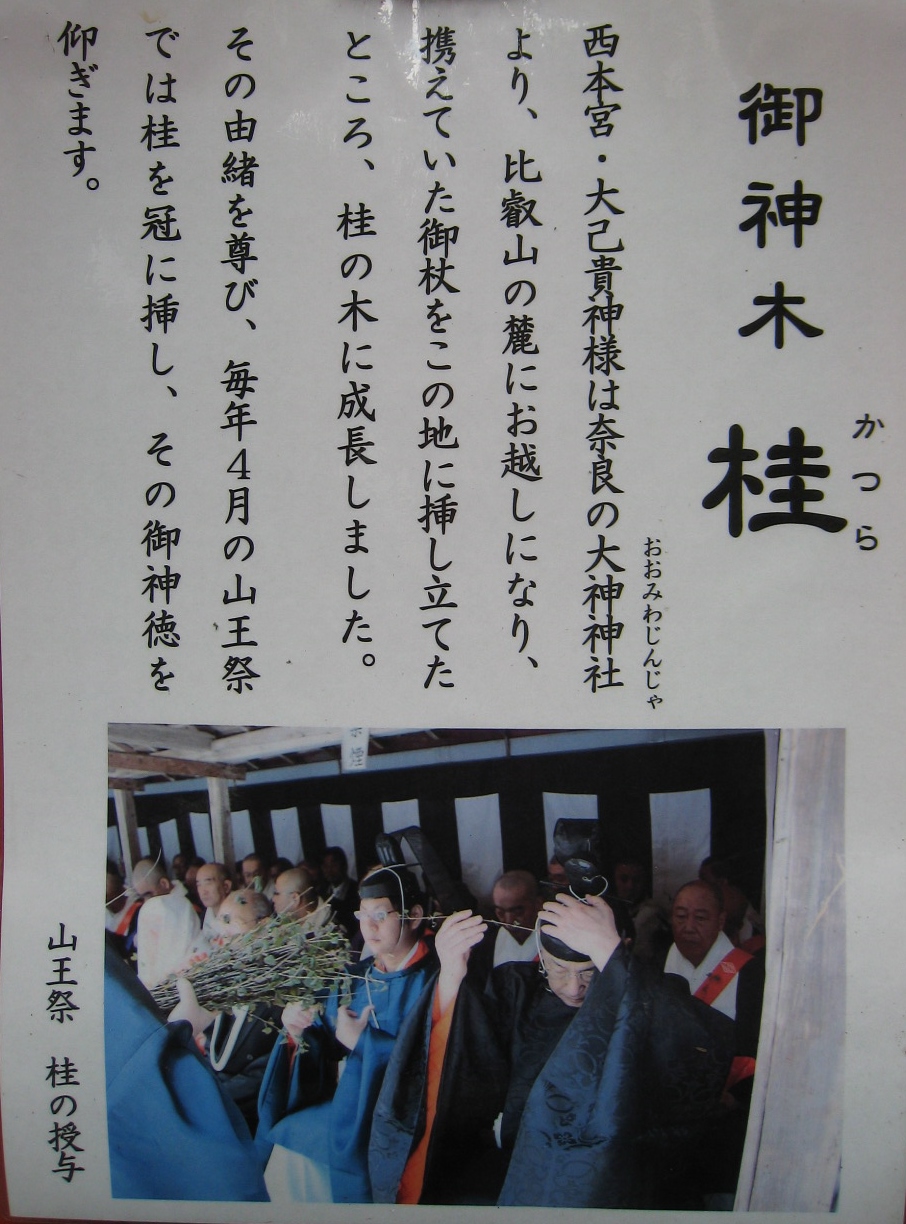 御神木 桂
かつら
西本宮・大己貴神様は奈良の大神神社
おおみわじんじゃ
より、比叡山の麓にお越しになり、
携えていた御杖をこの地に挿し立てた
ところ、桂の木に成長しました。
その由緒を尊び、毎年4月の山王祭
では桂を冠に挿し、その御神徳を
仰ぎます。
山王祭 桂の授与